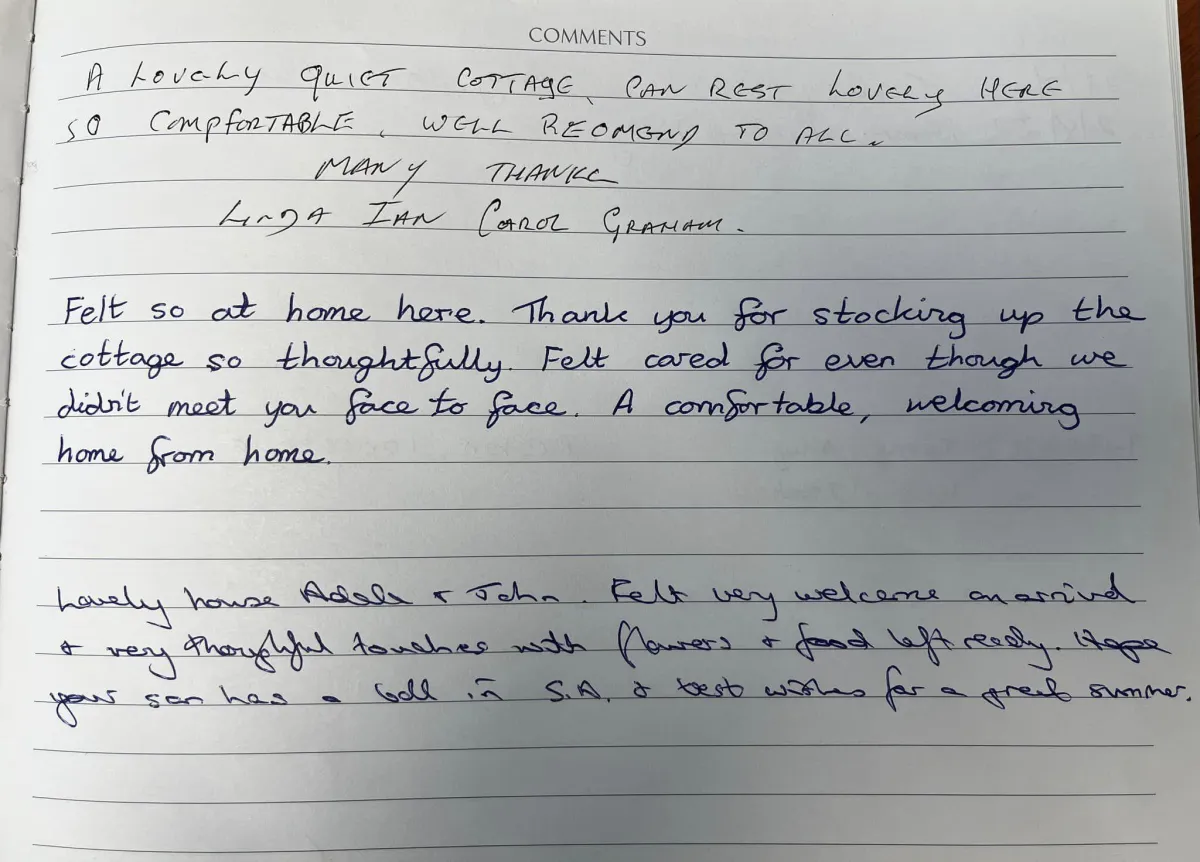 COMMENTS
A LOVELY QUIET COTTAGE, CAN REST LOVELY HERE
SO COMPFORTABLE, WELL REOMEND TO ALL.
MANY THANKS
LINDA IAN CAROL GRAHAM.
Felt so at home here. Thank you for stocking up the
cottage so thoughtfully. Felt cared for even though we
didn't meet you face to face. A comfortable, welcoming
home from home.
Lovely house Adele & John. Felt very welcome on arrival
& very thoughtful touches with flowers & food left ready. Hope
your son has a ball in S.A. & best wishes for a great summer.